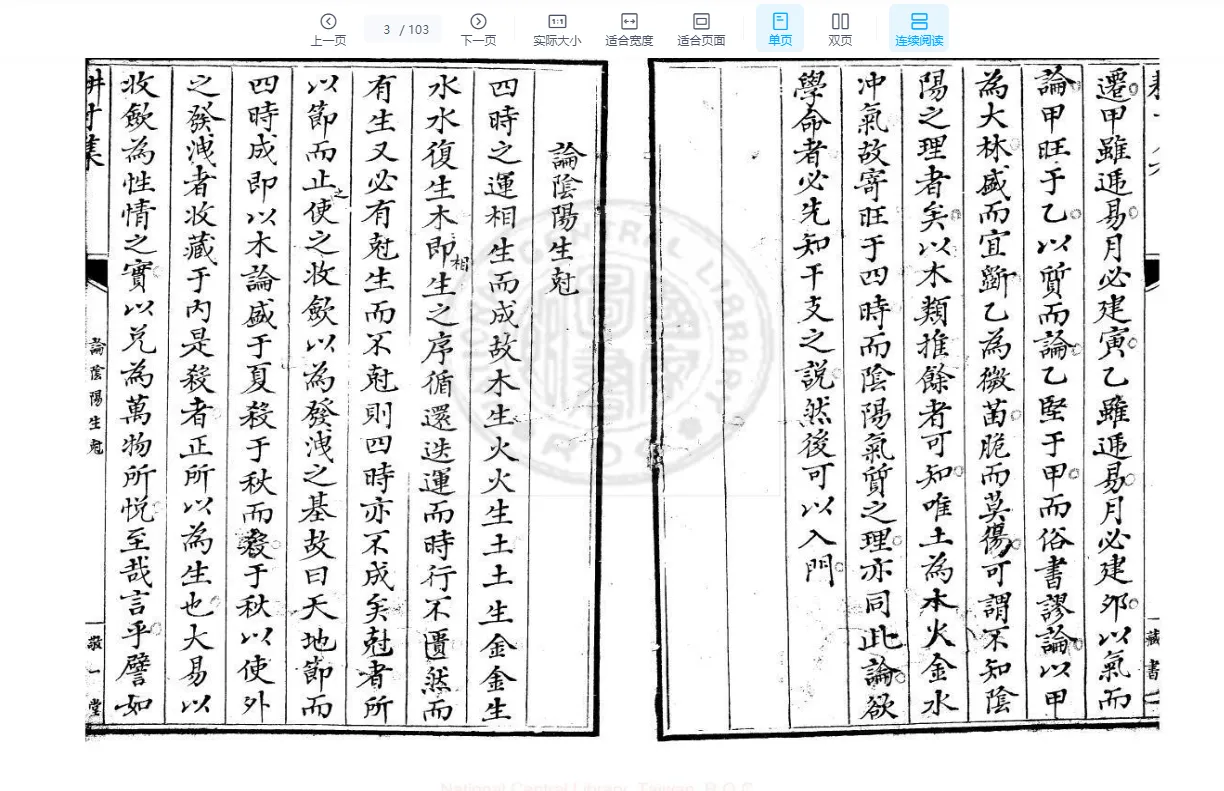 上一页
3 / 103
下一页
1:1
实际大小
适合宽度
适合页面
单页
双页
连续阅读
遷甲雖遞易月必建寅乙雖遞易月必建夘以氣而
論甲旺于乙以質而論乙堅于甲而俗書謬論以甲
為大林盛而宜斵乙為微苗脆而莫傷可謂不知陰
陽之理者矣以木類推餘者可知唯土為木火金水
冲氣故寄旺于四時而陰陽氣質之理亦同此論欲
學命者必先知干支之說然後可以入門
藏書
論陰陽生尅
四時之運相生而成故木生火火生土土生金金生
水水復生木即相生之序循還迭運而時行不匱然而
有生又必有尅生而不尅則四時亦不成矣尅者所
以節而止之使之收歛以為發洩之基故曰天地節而
四時成即以木論盛于夏殺于秋而於秋以使外
之發洩者收藏于內是殺者正所以為生也大易以
收歛為性情之實以兌為萬物所悅至哉言乎譬如
耕寸集
論陰陽生尅
敬一堂
CENTRAL LIBRARY
R.O.C.
National Central Library, Taiwan, R.O.C